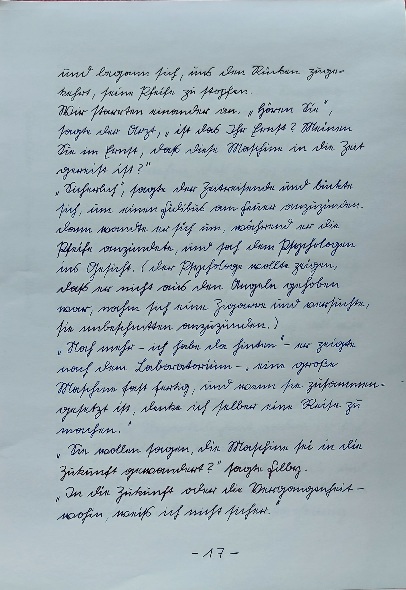 und begann sich, uns den Rücken zuge-
kehrt, seine Pfeife zu stopfen.
Wir starrten einander an. „Hören Sie",
sagte der Arzt, „ist das Ihr Ernst? Meinen
Sie im Ernst, daß diese Maschine in die Zeit
gereist ist?"
„Sicherlich", sagte der Zeitreisende und bückte
sich, um einen Fidibus am Feuer anzuzünden.
Dann wandte er sich um, während er die
Pfeife anzündete, und sah dem Psychologen
ins Gesicht. (Der Psychologe wollte zeigen,
daß er nicht aus den Angeln gehoben
war, nahm sich eine Zigarre und versuchte,
sie unbeschnitten anzuzünden.)
„Noch mehr – ich habe da hinten" – er zeigte
nach dem Laboratorium –, „eine große
Maschine fast fertig, und wenn sie zusammen-
gesetzt ist, denke ich selber eine Reise zu
machen."
„Sie wollen sagen, die Maschine sei in die
Zukunft gewandert?" sagte Filby.
„In die Zukunft oder die Vergangenheit –
wohin, weiß ich nicht sicher."
– 17 –